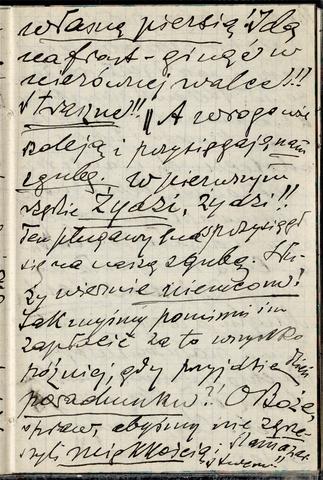 własną piersią! Idą
na front - giną w
nierównej walce!!!
Straszne!! A wrogowie
szaleją i przysięgają nam
zgubę. W pierwszym
rzędzie Żydzi, żydzi!!
Ten plugawy sprzysiągł
się na naszą zgubę. Słu-
ży wiernie niemcom!
Jak myśmy powinni im
zapłacić za to wszystko
później, gdy przyjdzie dzień
porachunku?! O Boże,
spraw, abyśmy nie zgrze-
szyli miękkością;